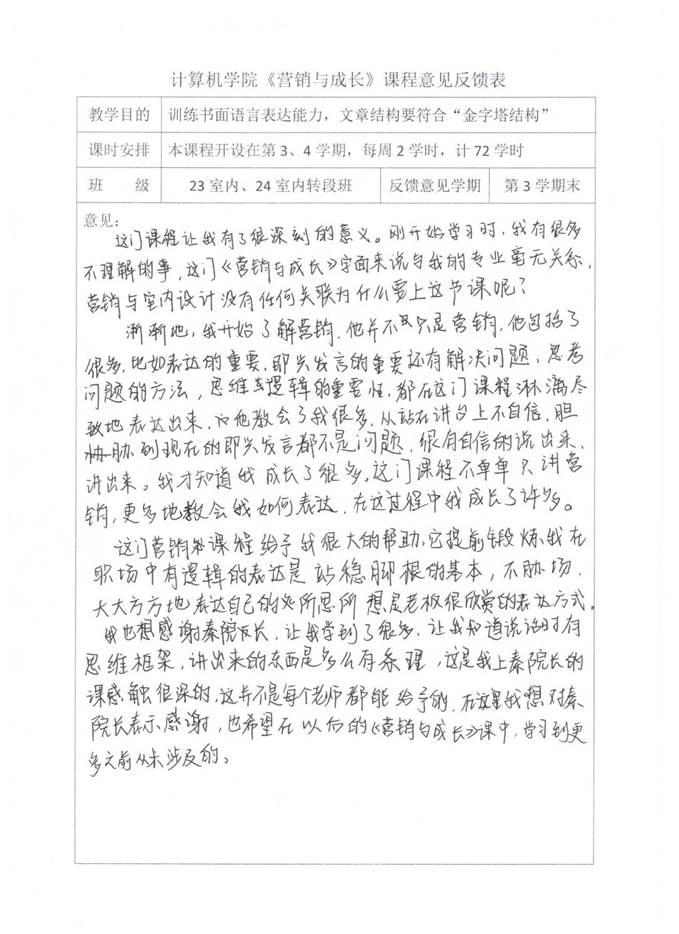 计算机学院《营销与成长》课程意见反馈表
教学目的 训练书面语言表达能力，文章结构要符合“金字塔结构”
课时安排 本课程开设在第 3、4 学期，每周 2 学时，计 72 学时
班 级 23 室内、24 室内转段班 反馈意见学期 第 3 学期末
意见：
这门课程让我有了很深刻的意义。刚开始学习时，我有很多
不理解的事，这门《营销与成长》字面来说与我的专业毫无关称，
营销与室内设计没有任何关联为什么要上这节课呢？
渐渐地，我开始了解营销，他并不只是营销，他包括了
很多，比如表达的重要，即兴发言的重要还有解决问题、思考
问题的方法，思维逻辑的重要性，都在这门课程淋漓尽
致地表达出来，他教会了我很多，从站在讲台上不自信，胆
胁到现在的即兴发言都不是问题，很有自信的说出来、
讲出来。我才知道我成长了很多。这门课程不单单只讲营
销，更多地教会我如何表达，在这过程中我成长了许多。
这门营销课程给予我很大的帮助，它提前锻炼我在
职场中有逻辑的表达是站稳脚根的基本，不胁场，
大大方方地表达自己的所思所想是老板很欣赏的表达方式。
我也想感谢秦院长，让我学到了很多，让我知道说话时有
思维框架，讲出来的东西是多么有条理，这是我上秦院长的
课感触很深的，这并不是每个老师都能给予的，在这里我想对秦
院长表示感谢，也希望在以后的《营销与成长》课中，学习到更
多之前从未涉及的。